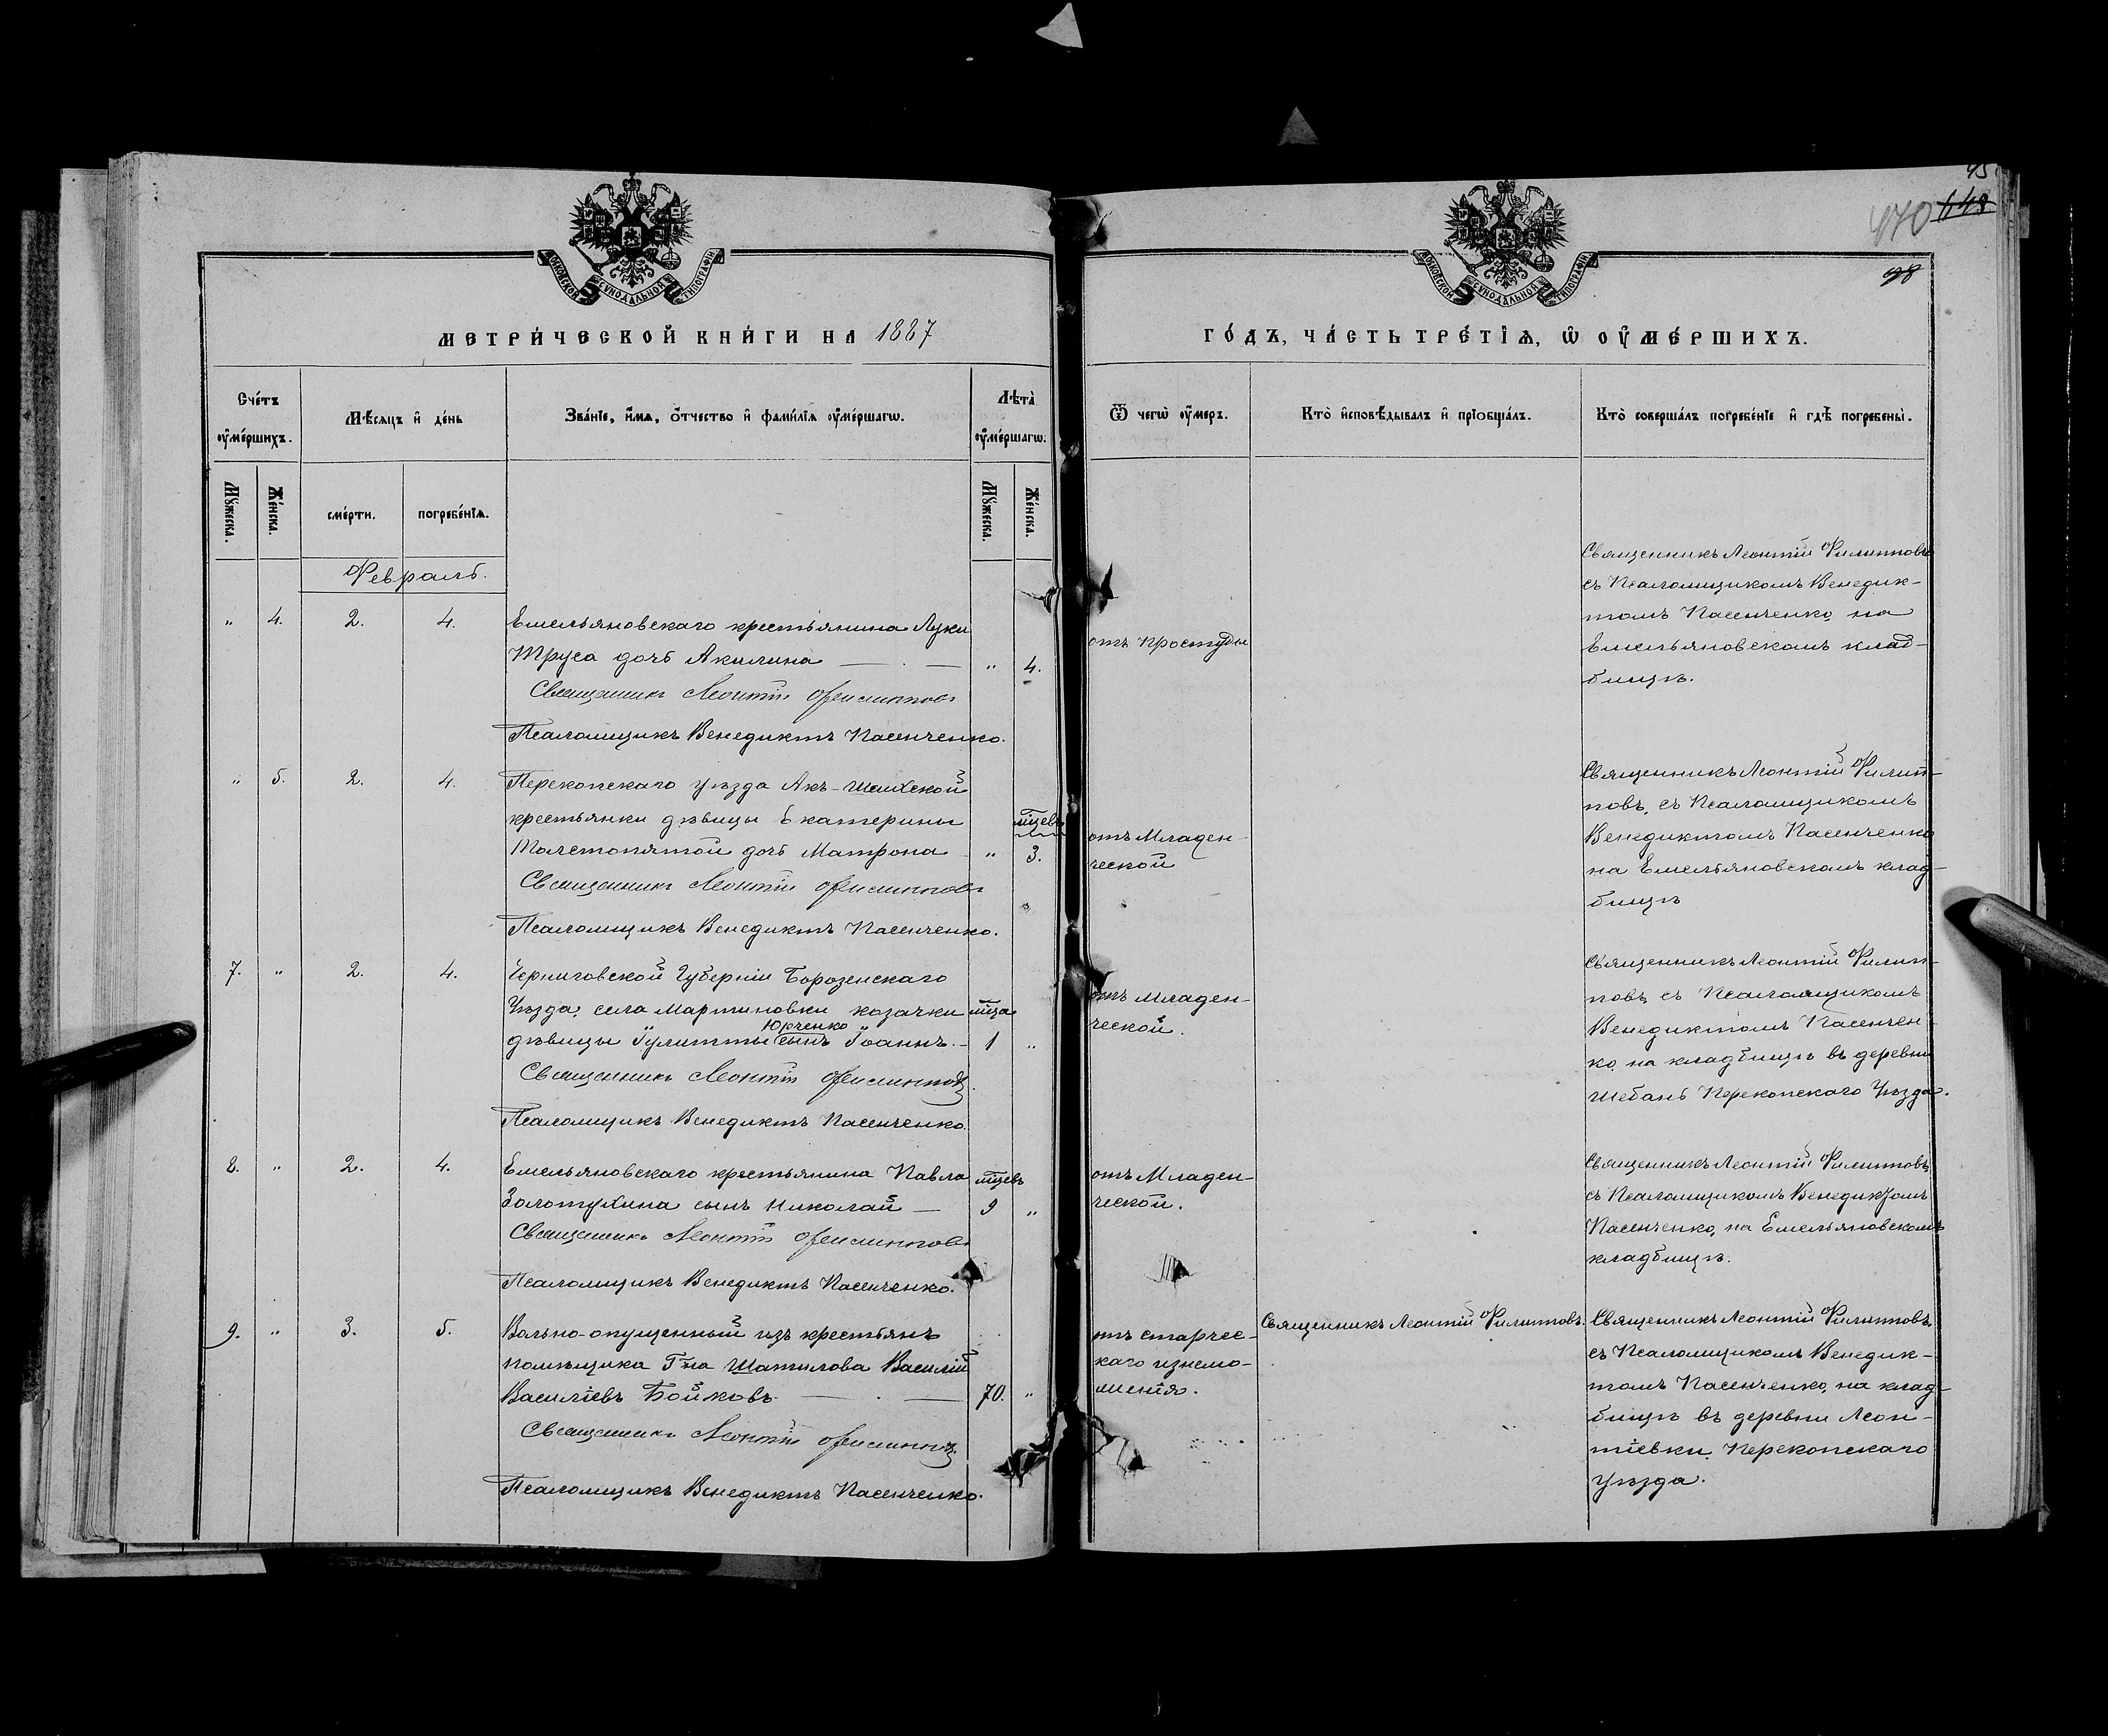 45
470 648
98
МОСКОВСКОЙ СѴНОДАЛЬНОЙ ТИПОГРАФІИ
МОСКОВСКОЙ СѴНОДАЛЬНОЙ ТИПОГРАФІИ
МЕТРИ́ЧЕСКОЙ КНИ́ГИ НА 1887
ГО́ДЪ, ЧА́СТЬ ТРЕ́ТІѦ, Ѡ҆ ОУ҆МЕ́РШИХЪ.
Сче́тъ оу҆ме́ршихъ.
Мѣ́сяцъ и҆ де́нь
Зва́нїе, и҆́мѧ, ѻ҆́тчество и҆ фами́лїѧ оу҆ме́ршагѡ.
Лѣ́та оу҆ме́ршагѡ.
Ѿ чегѡ̀ оу҆́меръ.
Кто̀ и҆сповѣ́дывалъ и҆ прїобща́лъ.
Кто̀ соверша́лъ погребе́нїе и҆ гдѣ̀ погребены̀.
Мꙋ́жеска.
Же́нска.
сме́рти.
погребе́нїѧ.
Мꙋ́жеска.
Же́нска.
Февраль.
„ 4. 2. 4.
Емельяновскаго крестьянина Луки
Труса дочь Акилина — . — „ 4.
Священникъ Леонтій Филипповъ
Псаломщикъ Венедиктъ Пасенченко.
отъ простуды
Священникъ Леонтій Филипповъ
съ Псаломщикомъ Венедик-
томъ Пасенченко, на
Емельяновскомъ клад-
бищѣ.
„ 5. 2. 4.
Перекопскаго уѣзда Акъ-Шеихской
крестьянки дѣвицы Екатерины мцевъ
Толстопятой дочь Матрона „ 3.
Священникъ Леонтій Филипповъ
Псаломщикъ Венедиктъ Пасенченко.
отъ Младен-
ческой
Священникъ Леонтій Филип-
повъ, съ Псаломщикомъ
Венедиктомъ Пасенченко
на Емельяновскомъ клад-
бищѣ
7. „ 2. 4.
Черниговской Губерніи Борозенскаго
Уѣзда, села Мартиновки козачки мца
Юрченко
дѣвицы Іулитты сынъ Іоаннъ. - 1 „
Священникъ Леонтій Филипповъ
Псаломщикъ Венедиктъ Пасенченко.
отъ Младен-
ческой.
Священникъ Леонтій Филип-
повъ, съ Псаломщикомъ
Венедиктомъ Пасенчен-
ко, на кладбищѣ въ деревни
Шебань Перекопскаго Уѣзда.
8. „ 2. 4.
Емельяновскаго крестьянина Павла мцевъ
Золотухина сынъ Николай — 9 „
Священникъ Леонтій Филипповъ
Псаломщикъ Венедиктъ Пасенченко.
отъ Младен-
ческой.
Священникъ Леонтій Филипповъ,
съ Псаломщикомъ Венедиктомъ
Пасенченко, на Емельяновскомъ
кладбищѣ.
9. „ 3. 5.
Вольно-опущенный изъ крестьянъ
помѣщика Г-на Шатилова Василій
Василіевъ Бойковъ. — . — 70. „
Священникъ Леонтій Филипповъ
Псаломщикъ Венедиктъ Пасенченко.
отъ старчес-
каго изнемо-
женія.
Священникъ Леонтій Филипповъ.
Священникъ Леонтій Филипповъ,
съ Псаломщикомъ Венедик-
томъ Пасенченко, на клад-
бищѣ въ деревни Леон-
тіевки, Перекопскаго
уѣзда.